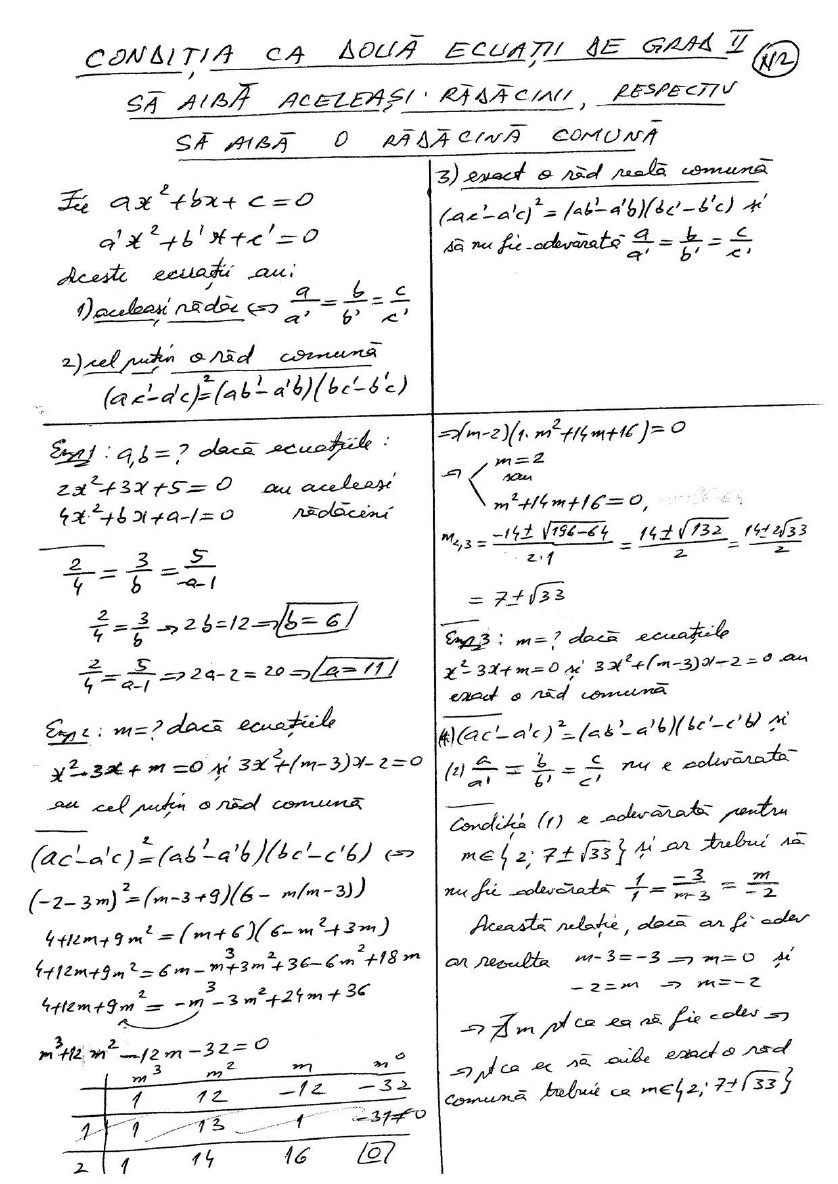 CONDIȚIA CA DOUĂ ECUAȚII DE GRAD II
N2
SĂ AIBĂ ACELEAȘI RĂDĂCINI, RESPECTIV
SĂ AIBĂ O RĂDĂCINĂ COMUNĂ
Fie ax²+bx+c=0
a'x²+b'x+c'=0
Aceste ecuații au:
1) aceleași rădăc ⇔ a/a' = b/b' = c/c'
2) cel puțin o răd comună
(ac'-a'c)²=(ab'-a'b)(bc'-b'c)
3) exact o răd reală comună
(ac'-a'c)²=(ab'-a'b)(bc'-b'c) și
să nu fie adevărată a/a' = b/b' = c/c'
Exp1: a,b=? dacă ecuațiile:
2x²+3x+5=0 au aceleași
4x²+bx+a-1=0 rădăcini
2/4 = 3/b = 5/a-1
2/4 = 3/b ⇒ 2b=12 ⇒ b=6
2/4 = 5/a-1 ⇒ 2a-2=20 ⇒ a=11
Exp2: m=? dacă ecuațiile
x²-3x+m=0 și 3x²+(m-3)x-2=0
au cel puțin o răd comună
(ac'-a'c)²=(ab'-a'b)(bc'-c'b) ⇔
(-2-3m)²=(m-3+9)(6-m(m-3))
4+12m+9m²=(m+6)(6-m²+3m)
4+12m+9m²=6m-m³+3m²+36-6m²+18m
4+12m+9m²=-m³-3m²+24m+36
m³+12m²-12m-32=0
m³ m² m m⁰
1 12 -12 -32
1 1 13 1 -31≠0
2 1 14 16 0
⇒(m-2)(1·m²+14m+16)=0
⇒ m=2
sau
m²+14m+16=0,
m₂,₃ = -14±√196-64/2·1 = 14±√132/2 = 14±2√33/2
= 7±√33
Exp3: m=? dacă ecuațiile
x²-3x+m=0 și 3x²+(m-3)x-2=0 au
exact o răd comună
(1)(ac'-a'c)²=(ab'-a'b)(bc'-c'b) și
(2) a/a' = b/b' = c/c' nu e adevărată
Condiția (1) e adevărată pentru
m∈{2; 7±√33} și ar trebui să
nu fie adevărată 1/1 = -3/m-3 = m/-2
Această relație, dacă ar fi adev
ar rezulta m-3=-3 ⇒ m=0 și
-2=m ⇒ m=-2
⇒ ∄ m pt ca ea să fie adev ⇒
⇒ pt ca ec să aibe exact o răd
comună trebuie ca m∈{2; 7±√33}